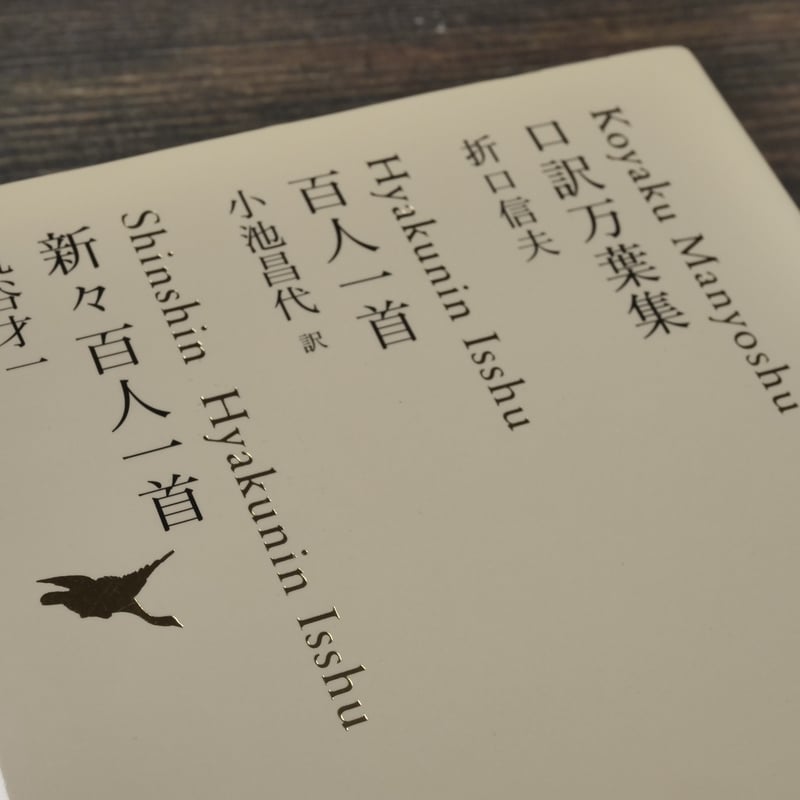 Koyaku Manyoshu
口訳万葉集
折口信夫
Hyakunin Isshu
百人一首
小池昌代 訳
Shinshin Hyakunin Isshu
新々百人一首
谷才一